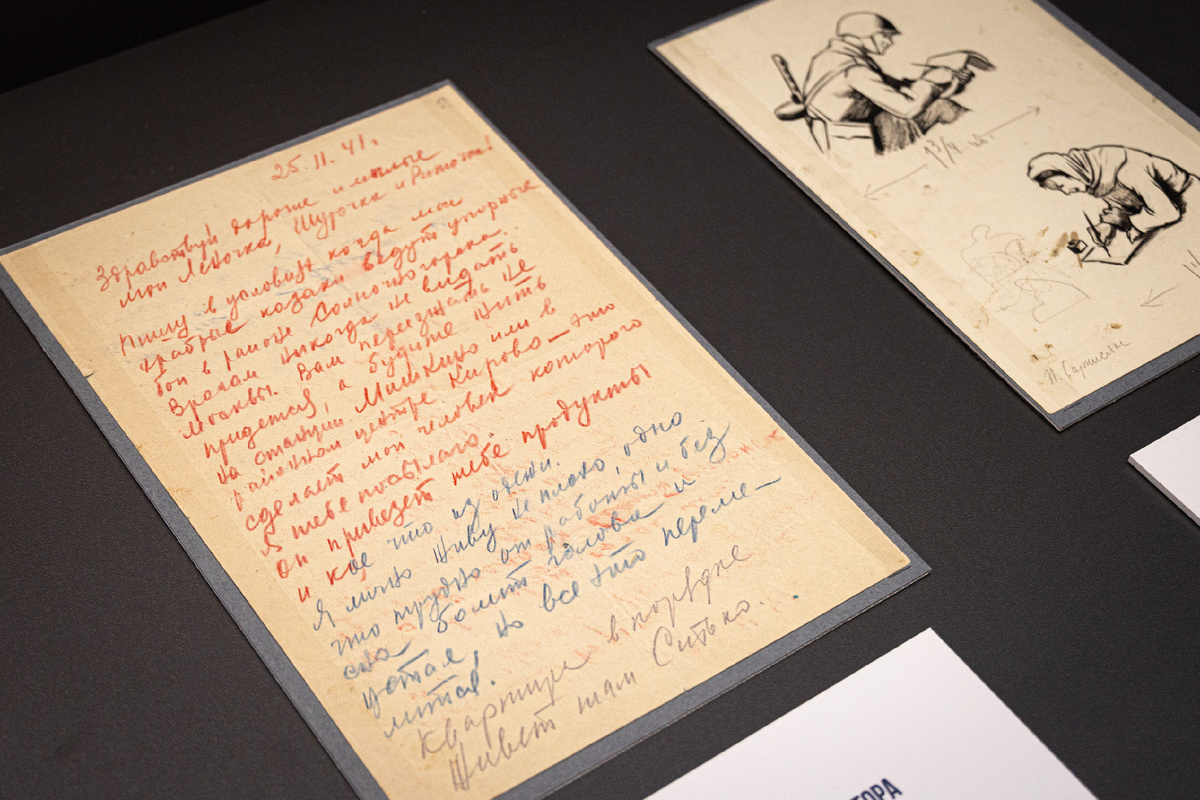 25.11.41.
Здравствуй дорогие и милые
мои Леночка, Шурочка и Риточка!
Пишу в условиях когда мои
храбрые казаки ведут упорные
бои в районе Солнечногорска.
Врагам никогда не видать
Москвы. Вам переезжать не
придется, а будите жить
на станции Мишкино или в
районном центре Кирово — это
сделает мой человек которого
я тебе посылаю.
он привезет тебе продукты
и кое что из одежи.
Я лично живу не плохо, одно
что трудно от работы и без
сна болит голова и
устал, но все это переме—
лится.
Квартире в порядке
живет там Ситько.
13/IV
ТОРА